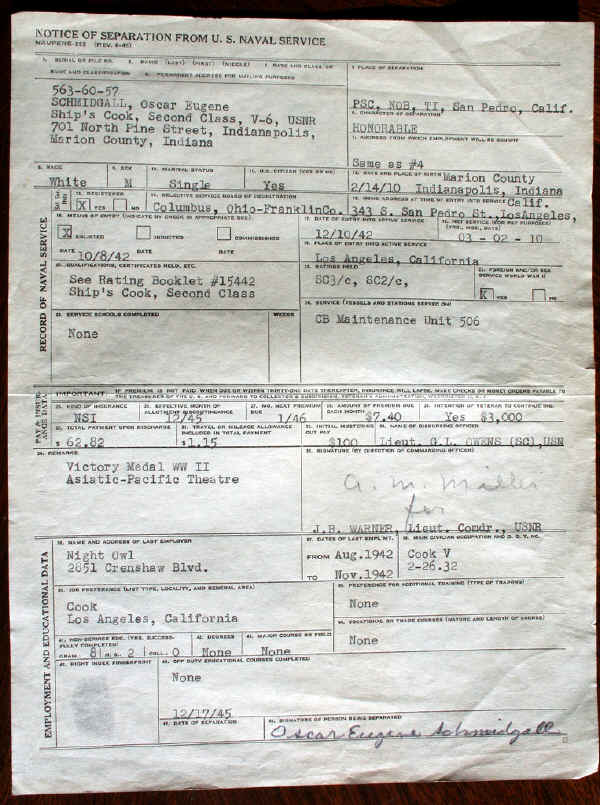 NOTICE OF SEPARATION FROM U. S. NAVAL SERVICE
NAVPERS-553 (REV. 8-45)
1. SERIAL OR FILE NO. 2. NAME (LAST) (FIRST) (MIDDLE) 3. RATE AND CLASS OR
RANK AND CLASSIFICATION 4. PERMANENT ADDRESS FOR MAILING PURPOSES
5. PLACE OF SEPARATION
563-60-57
SCHMIDGALL, Oscar Eugene
Ship's Cook, Second Class, V-6, USNR
701 North Pine Street, Indianapolis,
Marion County, Indiana
PSC, NOB, TI, San Pedro, Calif.
6. CHARACTER OF SEPARATION
HONORABLE
7. ADDRESS FROM WHICH EMPLOYMENT WILL BE SOUGHT
Same as #4
8. RACE 9. SEX 10. MARITAL STATUS 11. U.S. CITIZEN (YES OR NO)
White M Single Yes
12. DATE AND PLACE OF BIRTH Marion County
2/14/10 Indianapolis, Indiana
13. REGISTERED
X YES NO
14. SELECTIVE SERVICE BOARD OF REGISTRATION
Columbus, Ohio-FranklinCo.
15. HOME ADDRESS AT TIME OF ENTRY INTO SERVICE Calif.
343 S. San Pedro St., losAngeles,
16. MEANS OF ENTRY (INDICATE BY CHECK IN APPROPRIATE BOX)
X ENLISTED INDUCTED COMMISSIONED
DATE 10/8/42 DATE DATE
17. DATE OF ENTRY INTO ACTIVE SERVICE
12/10/42
18. NET SERVICE (FOR PAY PURPOSES) (YRS., MOS., DAYS)
03 - 02 - 10
19. PLACE OF ENTRY INTO ACTIVE SERVICE
Los Angeles, California
RECORD OF NAVAL SERVICE
20. QUALIFICATIONS, CERTIFICATES HELD, ETC.
See Rating Booklet #15442
Ship's Cook, Second Class
21. RATINGS HELD
SC3/c, SC2/c,
22. FOREIGN AND/OR SEA SERVICE WORLD WAR II
X YES NO
23. SERVICE SCHOOLS COMPLETED WEEKS
None
24. SERVICE (VESSELS AND STATIONS SERVED ON)
CB Maintenance Unit 506
PAY & INSURANCE DATA
IMPORTANT: IF PREMIUM IS NOT PAID WHEN DUE OR WITHIN THIRTY-ONE DAYS THEREAFTER, INSURANCE WILL LAPSE. MAKE CHECKS OR MONEY ORDERS PAYABLE TO
THE TREASURER OF THE U. S. AND FORWARD TO COLLECTIONS SUBDIVISION, VETERANS ADMINISTRATION, WASHINGTON 25, D. C.
25. KIND OF INSURANCE
NSI
26. EFFECTIVE MONTH OF ALLOTMENT DISCONTINUANCE
12/45
27. MO. NEXT PREMIUM DUE
1/46
28. AMOUNT OF PREMIUM DUE EACH MONTH
$7.40
29. INTENTION OF VETERAN TO CONTINUE INS.
Yes $3,000
30. TOTAL PAYMENT UPON DISCHARGE
$ 62.82
31. TRAVEL OR MILEAGE ALLOWANCE INCLUDED IN TOTAL PAYMENT
$ 1.15
32. INITIAL MUSTERING OUT PAY
$100
33. NAME OF DISBURSING OFFICER
Lieut. G.L. OWENS (SC),USN
34. REMARKS
Victory Medal WW II
Asiatic-Pacific Theatre
35. SIGNATURE (BY DIRECTION OF COMMANDING OFFICER)
A. M. Miller
for
J.B. WARNER, Lieut. Comdr., USNR
EMPLOYMENT AND EDUCATIONAL DATA
36. NAME AND ADDRESS OF LAST EMPLOYER
Night Owl
2851 Crenshaw Blvd.
37. DATES OF LAST EMPL'M'T.
FROM Aug.1942
TO Nov.1942
38. MAIN CIVILIAN OCCUPATION AND D. O. T. NO.
Cook V
2-26.32
39. JOB PREFERENCE (LIST TYPE, LOCALITY, AND GENERAL AREA)
Cook
Los Angeles, California
40. PREFERENCE FOR ADDITIONAL TRAINING (TYPE OF TRAINING)
None
41. NON-SERVICE EDUC. (YRS. SUCCESSFULLY COMPLETED)
GRAM. 8 H. S. 2 COLL. 0
42. DEGREES
None
43. MAJOR COURSE OR FIELD
None
44. VOCATIONAL OR TRADE COURSES (NATURE AND LENGTH OF COURSE)
None
45. RIGHT INDEX FINGERPRINT
46. OFF DUTY EDUCATIONAL COURSES COMPLETED
None
12/17/45
47. DATE OF SEPARATION
48. SIGNATURE OF PERSON BEING SEPARATED
Oscar Eugene Schmidgall